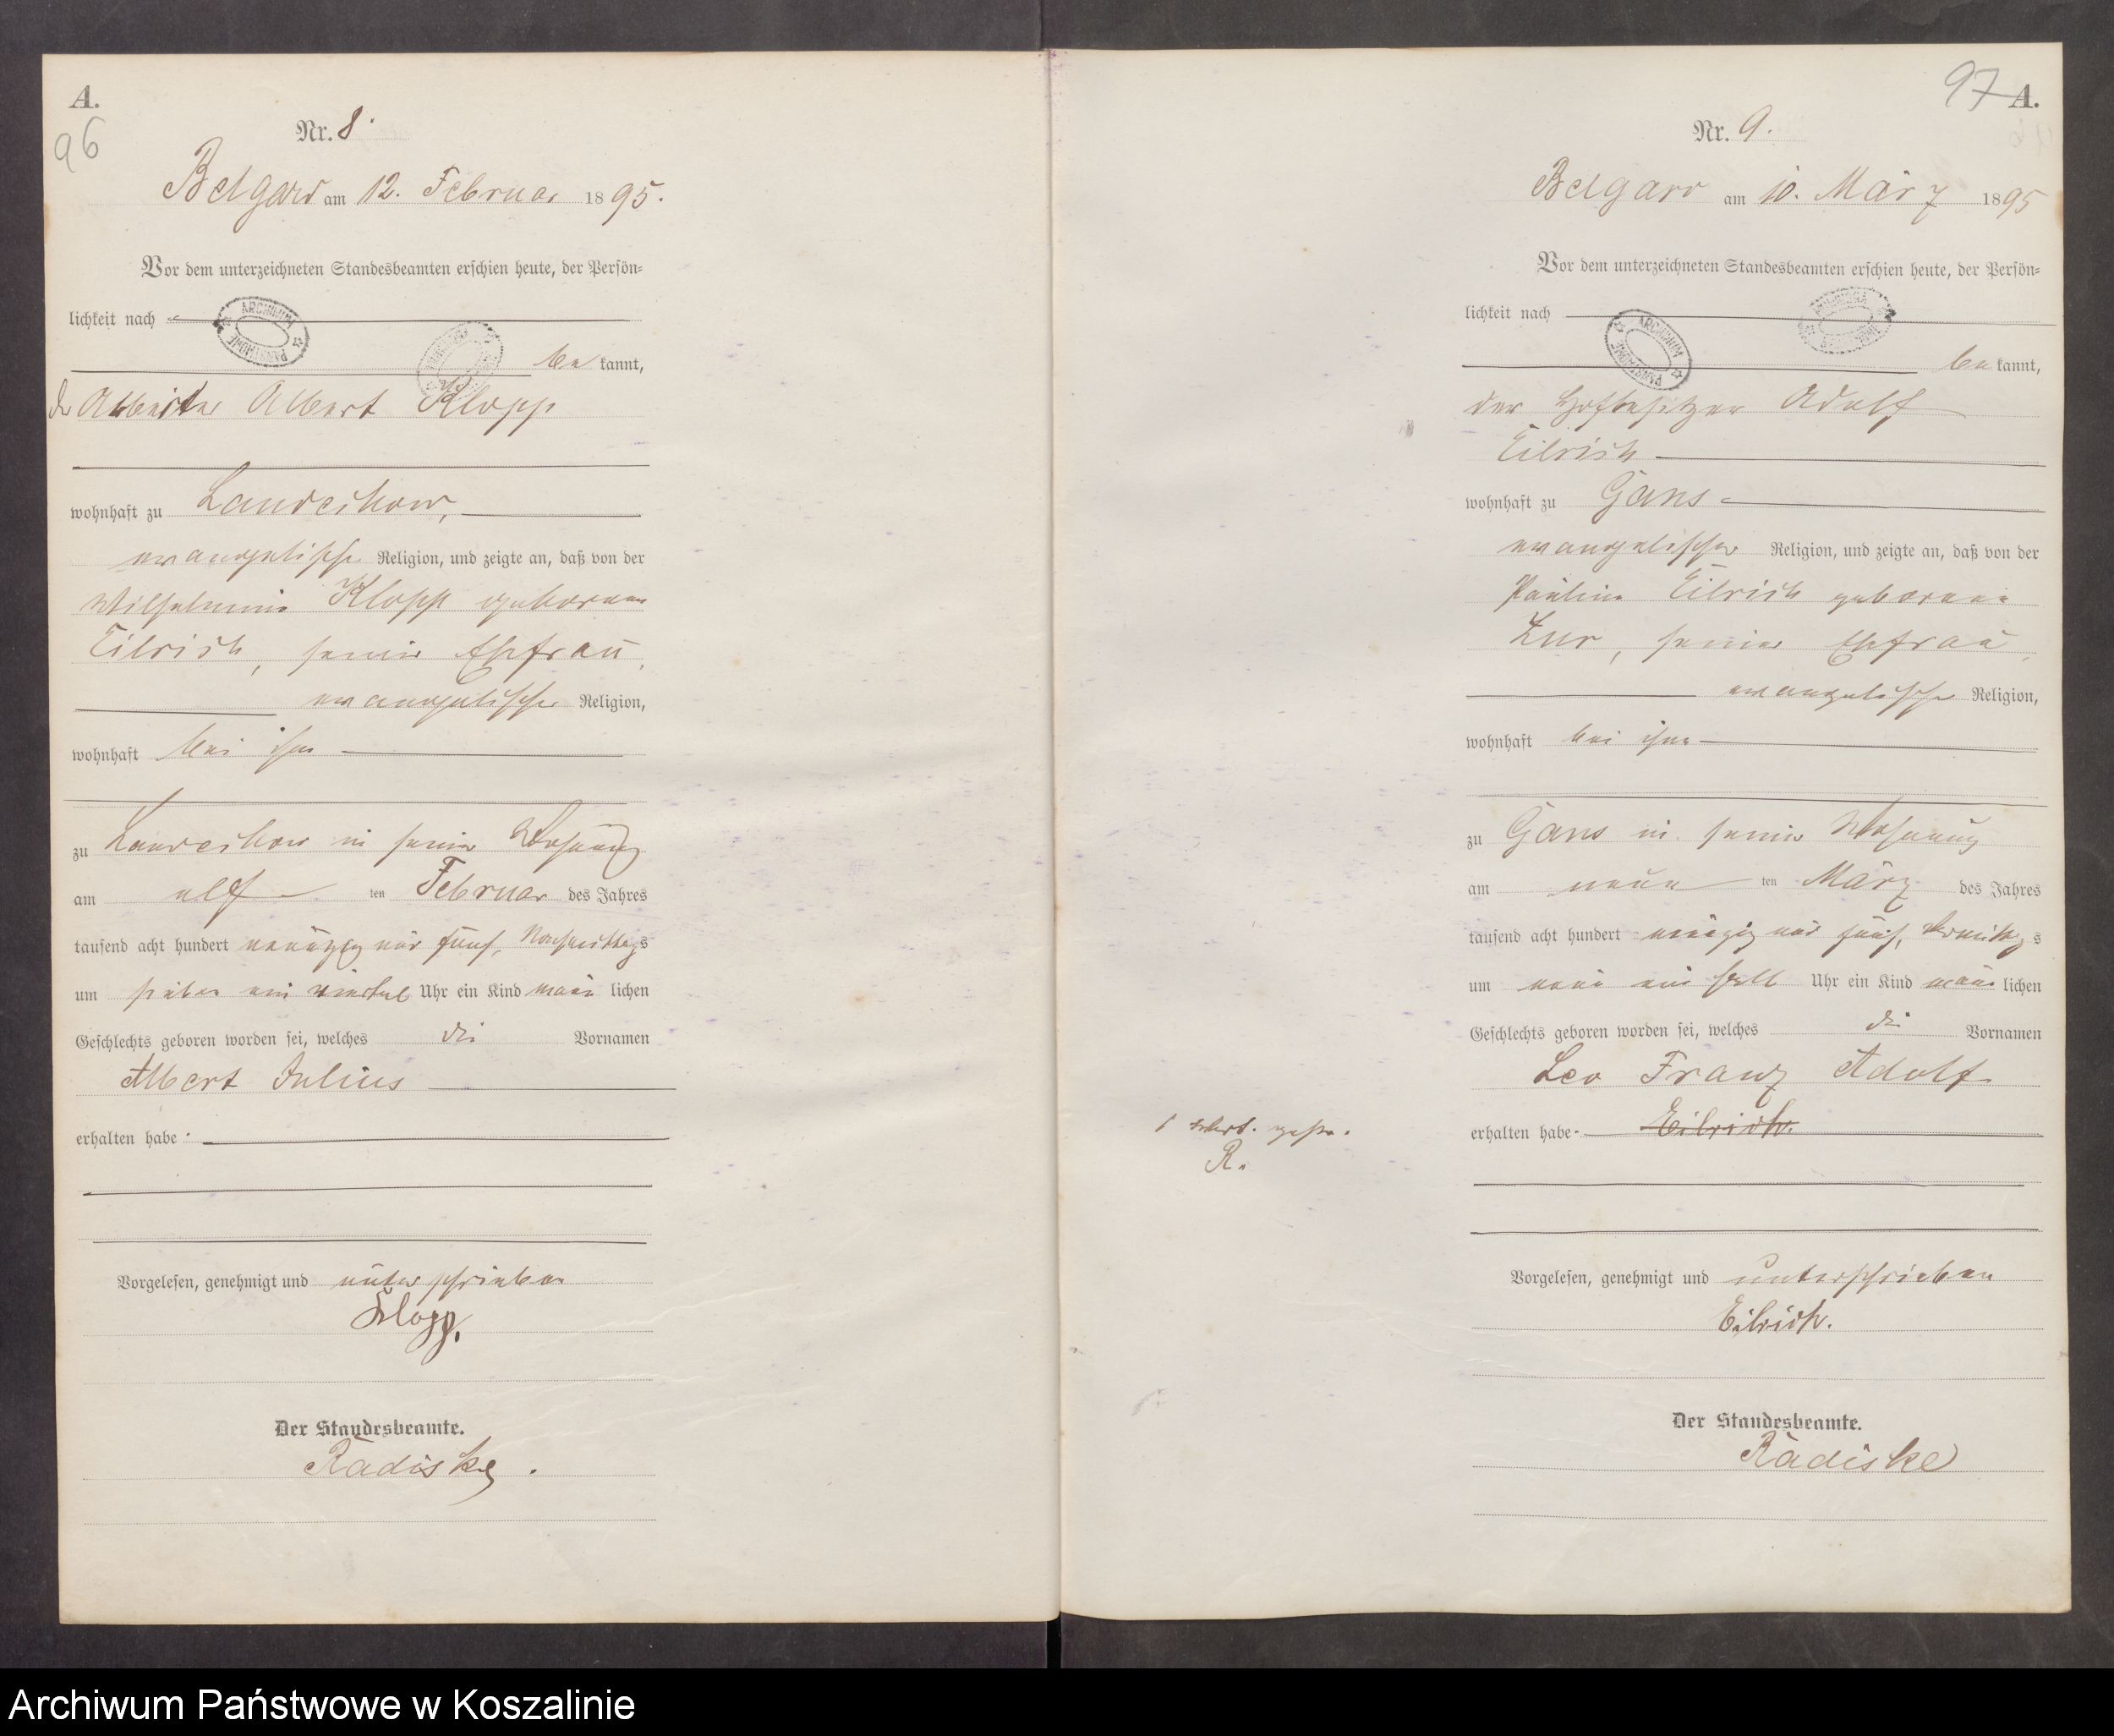 A.
96
Nr. 8.
Belgard am 12. Februar 1895.
Vor dem unterzeichneten Standesbeamten erschien heute, der Persön-
lichkeit nach
be kannt,
der Arbeiter Albert Klopp
wohnhaft zu Landechow,
evangelischer Religion, und zeigte an, daß von der
Wilhelmine Klopp geborenen
Eilrich, seiner Ehefrau,
evangelischer Religion,
wohnhaft bei ihm
zu Landechow in seiner Wohnung
am elf ten Februar des Jahres
tausend acht hundert neunzig und fünf, Nachmittags
um sieben ein viertel Uhr ein Kind männ lichen
Geschlechts geboren worden sei, welches die Vornamen
Albert Julius
erhalten habe.
Vorgelesen, genehmigt und unterschrieben
Klopp.
Der Standesbeamte.
Radiske.
97 A.
Nr. 9.
Belgard am 10. März 1895
Vor dem unterzeichneten Standesbeamten erschien heute, der Persön-
lichkeit nach
be kannt,
der Hofbesitzer Adolf
Eilrich
wohnhaft zu Gans
evangelischer Religion, und zeigte an, daß von der
Pauline Eilrich geborene
seiner Ehefrau,
evangelischer Religion,
wohnhaft bei ihm
zu Gans in seiner Wohnung
am neun ten März des Jahres
tausend acht hundert neunzig und fünf, Vormittags
um neun ein halb Uhr ein Kind männ lichen
Geschlechts geboren worden sei, welches die Vornamen
Leo Franz Adolf
erhalten habe. Eilrich.
1 Wort. gestr.
R.
Vorgelesen, genehmigt und unterschrieben
Eilrich.
Der Standesbeamte.
Radiske
Archiwum Państwowe w Koszalinie